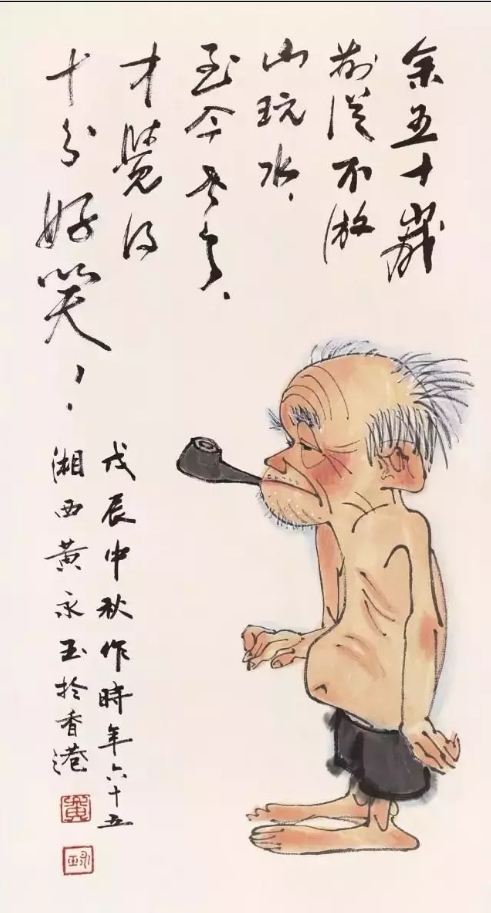 余五十歲
前從不游
山玩水、
至今老了、
才覺得
十分好笑！
戊辰中秋作時年六十五
湘西黃永玉於香港
黃